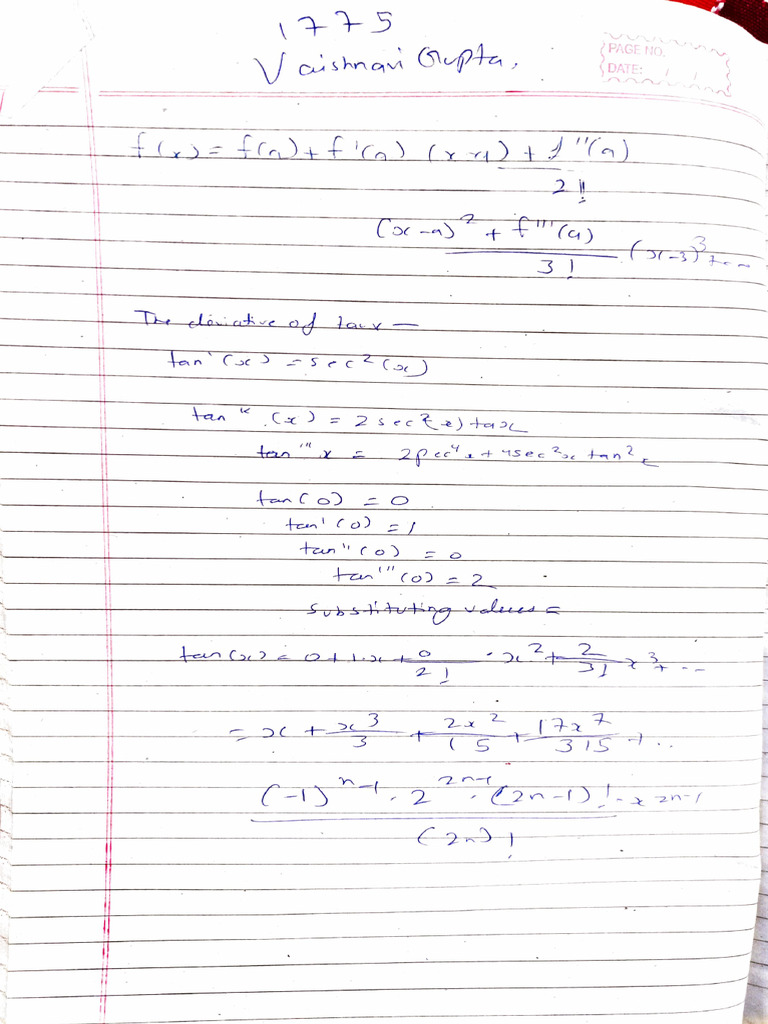 1775
Vaishnavi Gupta.
PAGE NO.
DATE: / /
f(x) = f(a) + f'(a) (x-a) + f''(a)
2!
(x-a)² + f'''(a) (x-3)³ + ---
3!
The derivative of tanx —
tan'(x) = sec²(x)
tan'' (x) = 2sec²(x) tanx
tan''' x = 2sec⁴x + 4sec²x tan²x
tan(0) = 0
tan'(0) = 1
tan''(0) = 0
tan'''(0) = 2
substituting values =
tan(x) = 0 + 1·x + 0/2! · x² + 2/3! x³ + ---
= x + x³/3 + 2x²/15 + 17x⁷/315 + ...
(-1)ⁿ⁻¹ · 2²ⁿ⁻¹ · (2n-1)! · x 2n-1
(2n)!